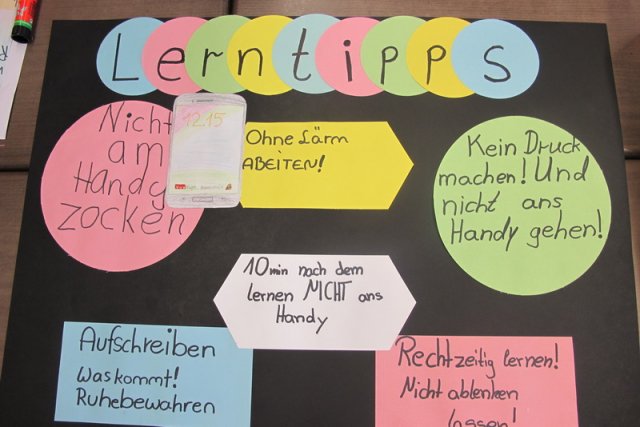 Lerntipps
Nicht
am
Handy
zocken
12.15
Ohne Lärm
ABEITEN!
Kein Druck
machen! Und
nicht ans
Handy gehen!
10min nach dem
lernen NICHT ans
Handy
Aufschreiben
Was kommt!
Ruhebewahren
Rechtzeitig lernen!
Nicht ablenken
lassen!